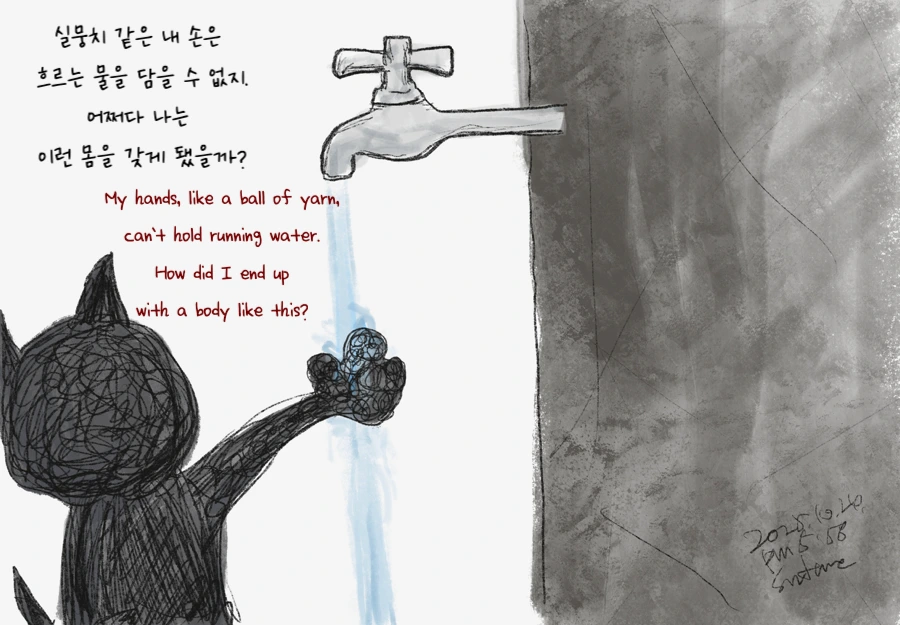 실뭉치 같은 내 손은
흐르는 물을 담을 수 없지.
어쩌다 나는
이런 몸을 갖게 됐을까?
My hands, like a ball of yarn,
can't hold running water.
How did I end up
with a body like this?
pm 5:58